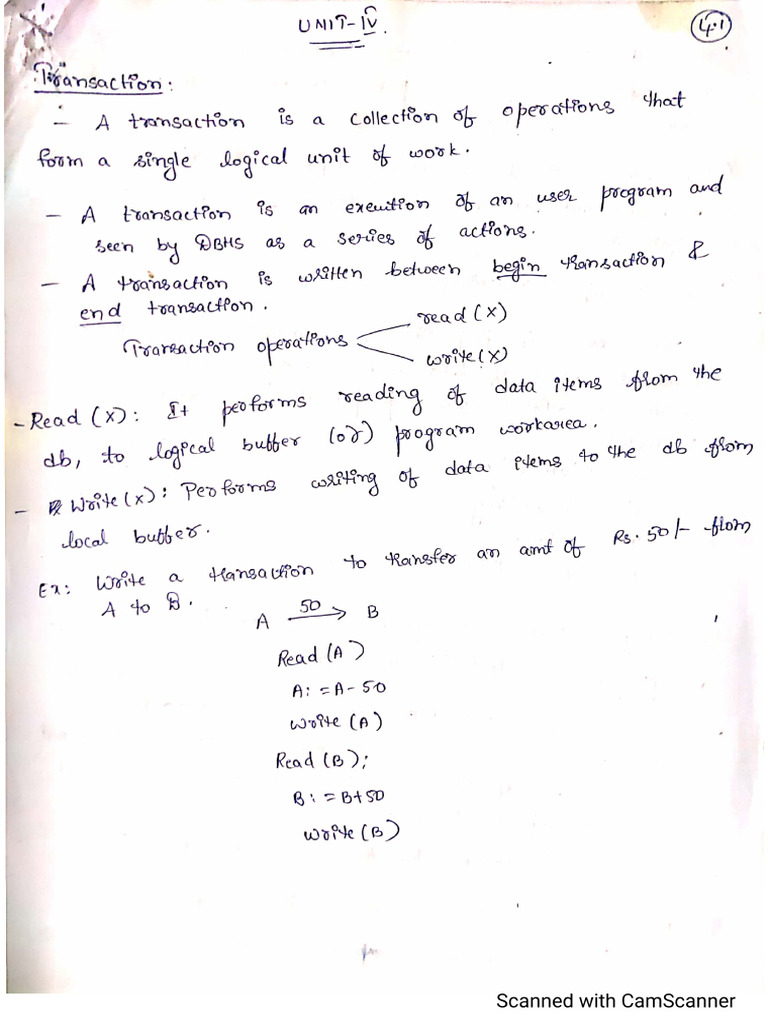 UNIT-IV.
4.1
Transaction:
- A transaction is a collection of operations that
form a single logical unit of work.
- A transaction is an execution of an user program and
seen by DBMS as a series of actions.
- A transaction is written between begin transaction &
end transaction.
Transaction operations
read (X)
write (X)
- Read (X): It performs reading of data items from the
db, to logical buffer (or) program workarea.
- Write (X): Performs writing of data items to the db from
local buffer.
Ex: Write a transaction to transfer an amt of Rs. 50/- from
A to B.
A 50 → B
Read (A)
A: = A - 50
Write (A)
Read (B);
B: = B+50
Write (B)
Scanned with CamScanner